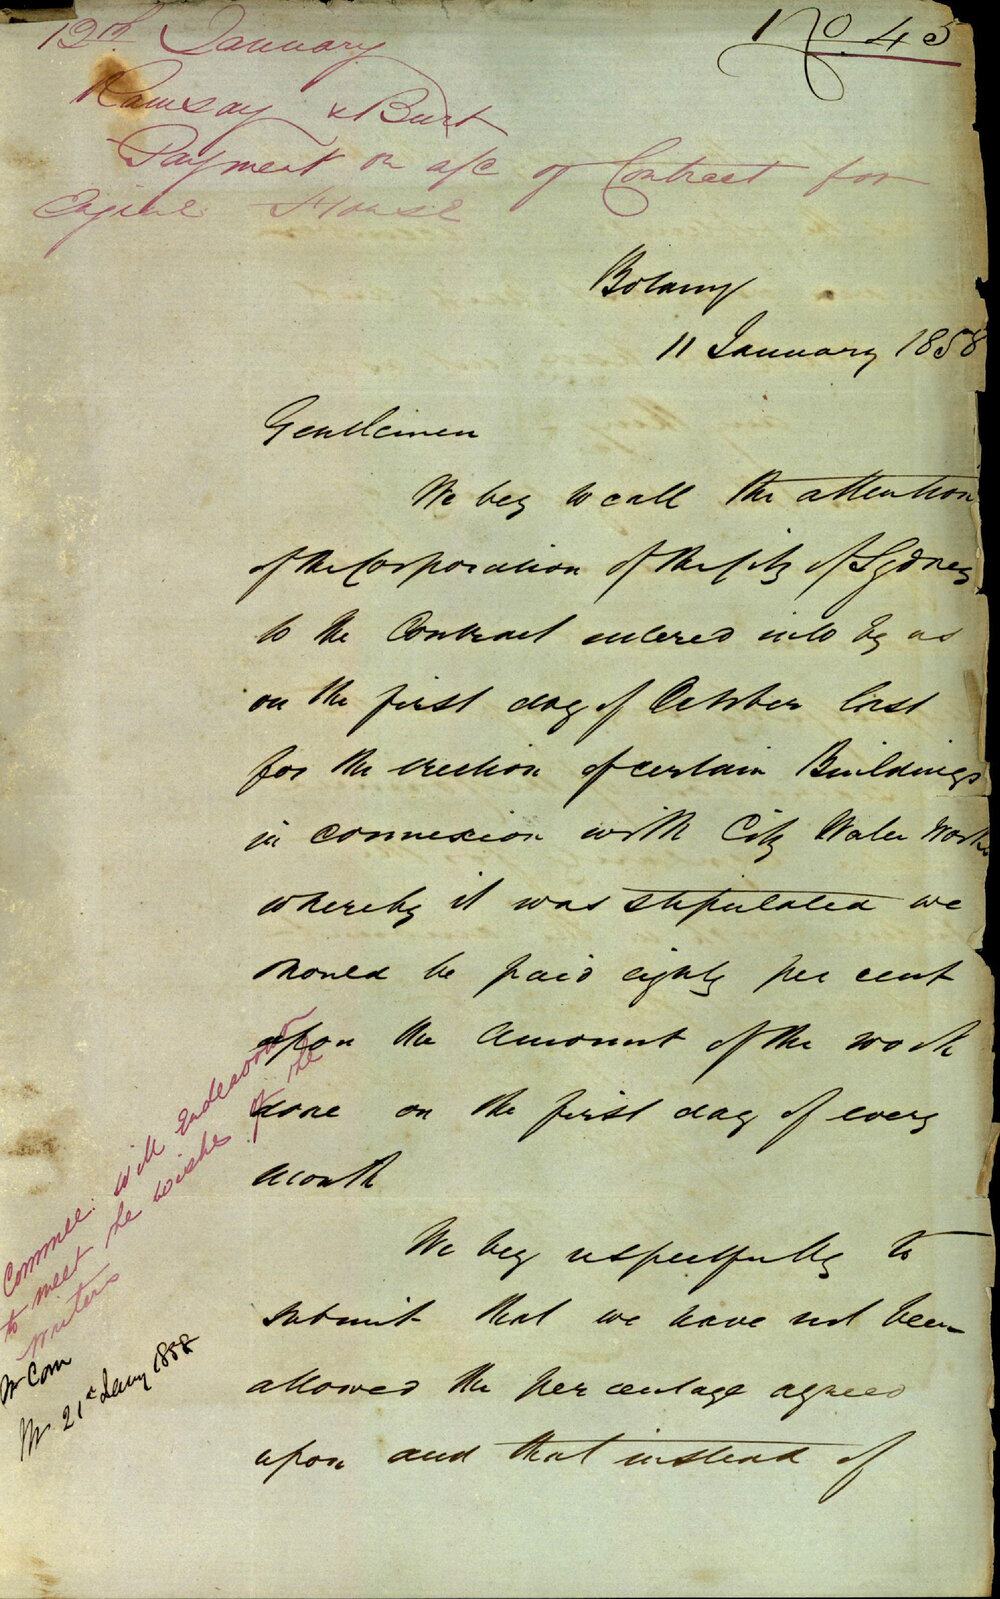 No. 45
12th January
Ramsay & Burt
Payment on a/c of Contract for
Engine House
Botany
11 January 1858
Gentlemen
We beg to call the attention
of the Corporation of the City of Sydney
to the Contract entered into by us
on the first day of October last
for the erection of certain Buildings
in connexion with City Water Works
whereby it was stipulated we
should be paid eighty per cent
upon the amount of the work
done on the first day of every
month
We beg respectfully to
submit that we have not been
allowed the per centage agreed
upon and that instead of
Commee. will endeavour
to meet the wishes of the
writers
W Com
W 21st Jany 1858